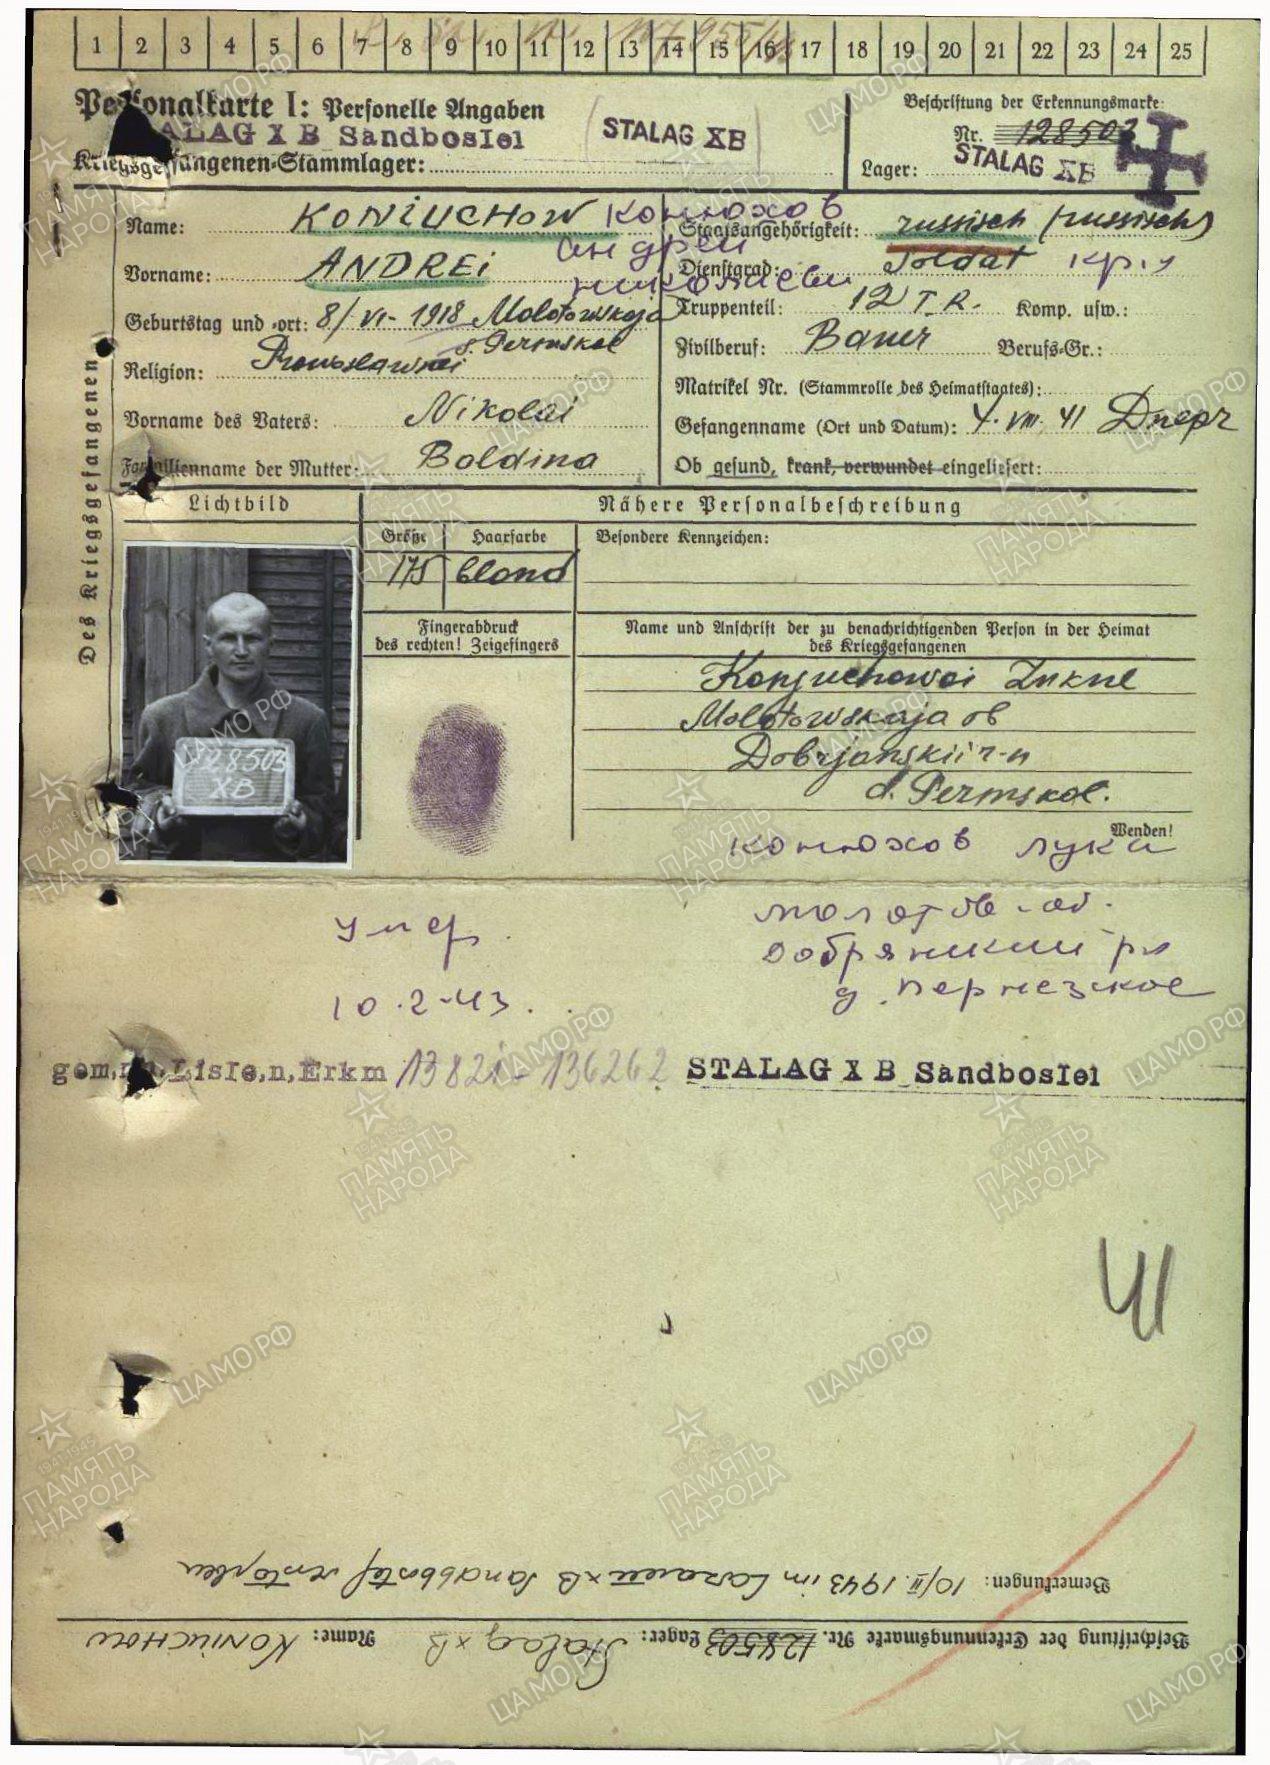 1 2 3 4 5 6 7 8 9 10 11 12 13 14 15 16 17 18 19 20 21 22 23 24 25
Personalkarte I: Personelle Angaben
STALAG X B Sandbostel
STALAG XB
Kriegsgefangenen-Stammlager:
Beschriftung der Erkennungsmarke:
Nr. 128503
Lager: STALAG XB
Des Kriegsgefangenen
Name: KONIUCHOW Конюхов
Vorname: ANDREI Андрей
Николаеви
Geburtstag und -ort: 8/VI- 1918 Molotowskaja
d. Permskoe
Religion: Prowoslawnei
Vorname des Vaters: Nikolai
Familienname der Mutter: Boldina
Staatsangehörigkeit: russisch (russisch)
Dienstgrad: Soldat кр.
Truppenteil: 12 T.R. Komp. usw.:
Zivilberuf: Bauer Berufs-Gr.:
Matrikel Nr. (Stammrolle des Heimatstaates):
Gefangennahme (Ort und Datum): 4. VIII. 41 Dnepr
Ob gesund, krank, verwundet eingeliefert:
Lichtbild
Nähere Personalbeschreibung
Größe Haarfarbe Besondere Kennzeichen:
175 blond
128503
XB
Fingerabdruck
des rechten! Zeigefingers
Name und Anschrift der zu benachrichtigenden Person in der Heimat
des Kriegsgefangenen
Konjuchowoi
Molotowskaja ob
Dobrjanskii r-n
d. Permskoe.
Wenden!
Конюхов Лука
Молотов-об.
Добрянкий рн
д. Пермезское
Умер.
10.2-43.
gem. Liste, n, Erkm 136262 STALAG X B Sandbostel
41
Bemerkungen: 10/II. 1943 im Lazarett XB Sandbostel verstorben
Beschriftung der Erkennungsmarke Nr. 128503 Lager: Stalag XB Name: KONIUCHOW
ЦАМО РФ
1941-1945
ПАМЯТЬ
НАРОДА